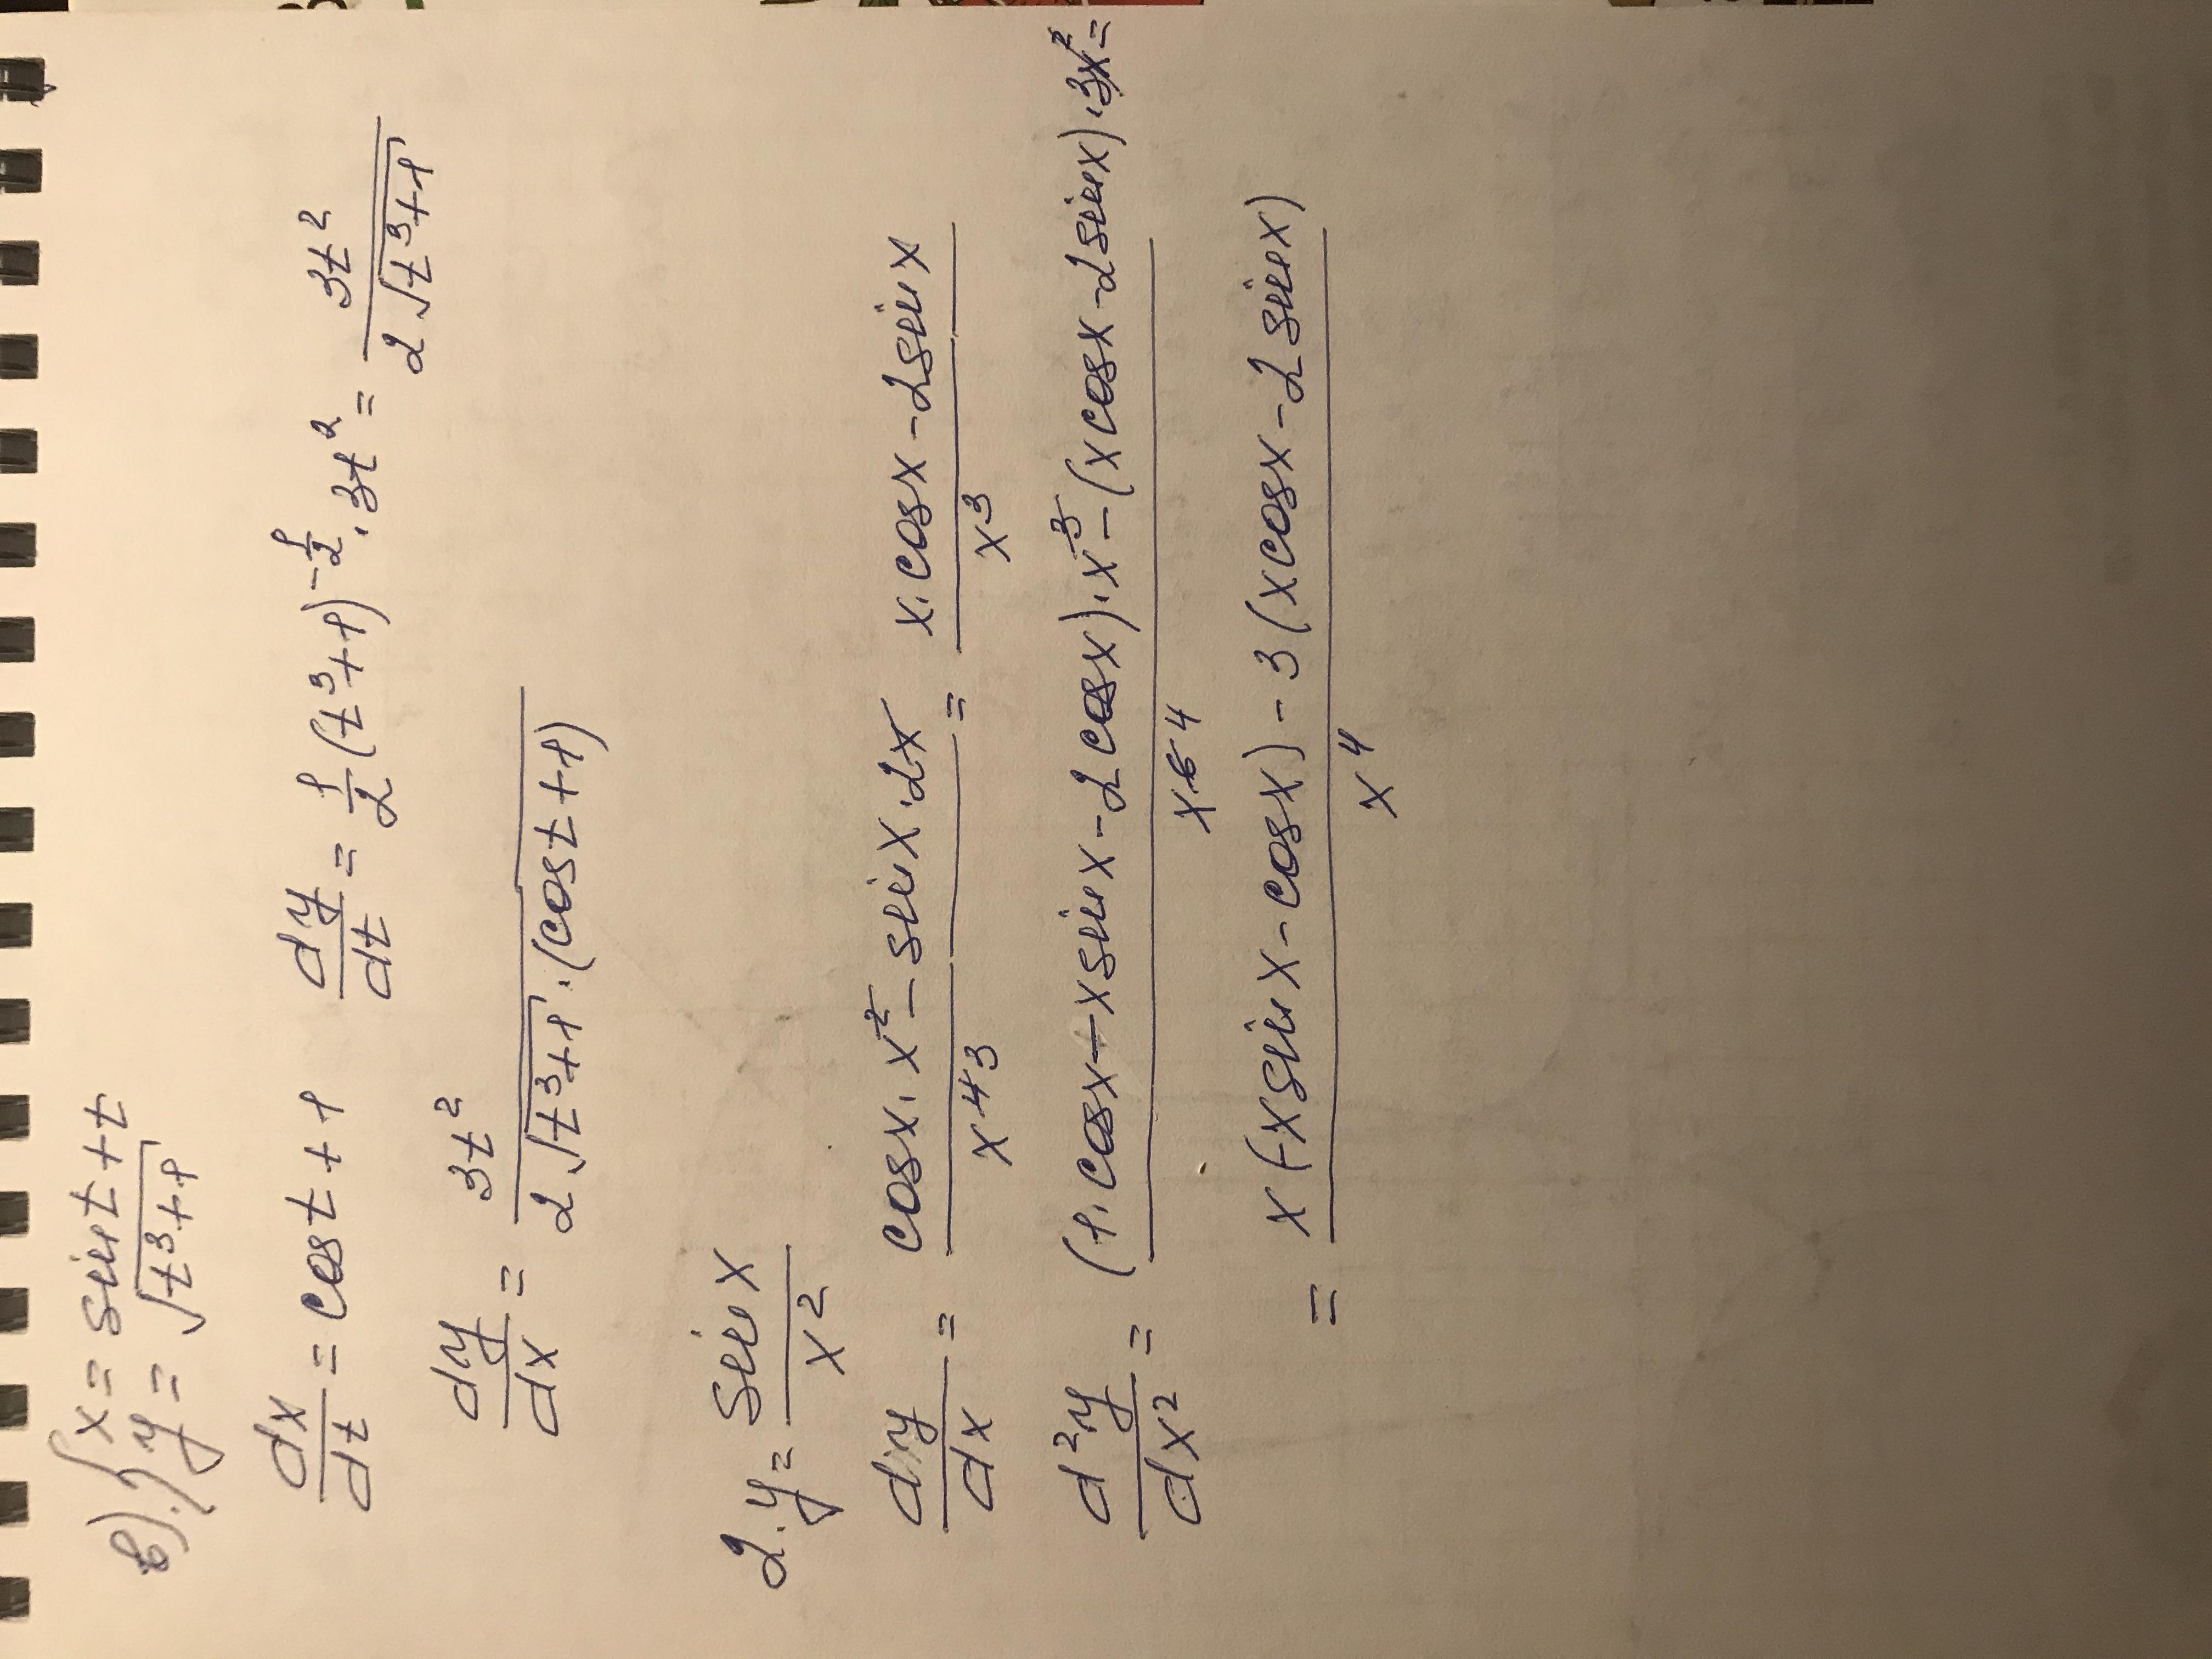 в). { x = sint + t
y = √(t³+1)
dx/dt = cost + 1  dy/dt = 1/2 (t³+1)^(-1/2) · 3t² = 3t² / (2√(t³+1))
dy/dx = 3t² / (2√(t³+1) · (cost+1))
2. y = sinx / x²
dy/dx = (cosx · x² - sinx · 2x) / x⁴ ³ = (x · cosx - 2sinx) / x³
d²y/dx² = ((1 · cosx - x sinx - 2cosx) · x³ - (x cosx - 2sinx) · 3x²) / x⁶ ⁴ =
= (x(-x sinx - cosx) - 3(x cosx - 2 sinx)) / x⁴